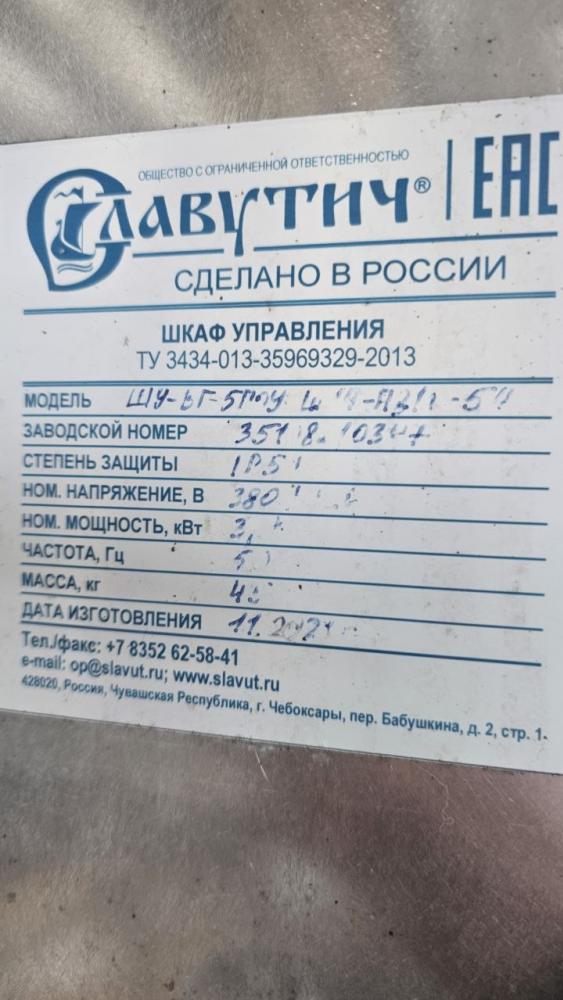 ОБЩЕСТВО С ОГРАНИЧЕННОЙ ОТВЕТСТВЕННОСТЬЮ
СЛАВУТИЧ® EAC
СДЕЛАНО В РОССИИ
ШКАФ УПРАВЛЕНИЯ
ТУ 3434-013-35969329-2013
МОДЕЛЬ
ЗАВОДСКОЙ НОМЕР
СТЕПЕНЬ ЗАЩИТЫ
НОМ. НАПРЯЖЕНИЕ, В 380
НОМ. МОЩНОСТЬ, кВт
ЧАСТОТА, Гц
МАССА, кг
ДАТА ИЗГОТОВЛЕНИЯ 11.2021
Тел./факс: +7 8352 62-58-41
e-mail: op@slavut.ru; www.slavut.ru
428020, Россия, Чувашская Республика, г. Чебоксары, пер. Бабушкина, д. 2, стр. 1-